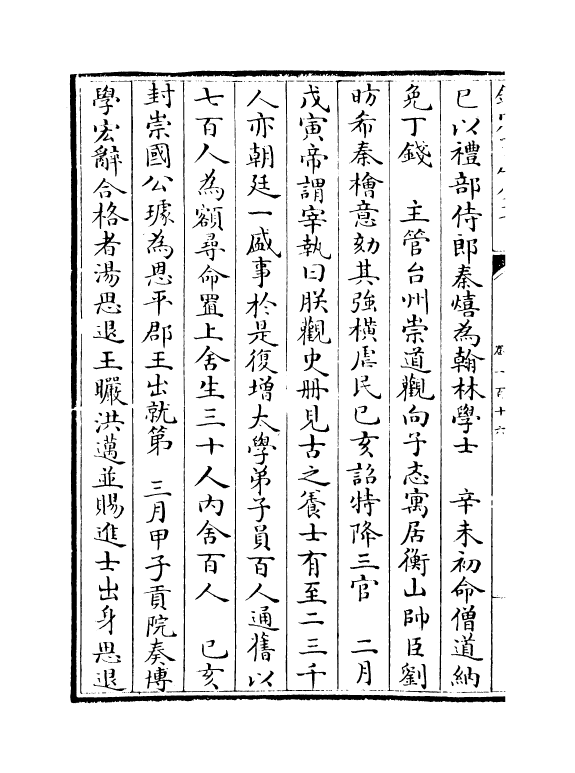 卷一百十六
已以禮部侍郎秦熺為翰林學士　辛未初命僧道納
免丁錢　主管台州崇道觀向子忞寓居衡山帥臣劉
昉希秦檜意劾其強横虐民已亥詔特降三官　二月
戊寅帝謂宰執曰朕觀史册見古之養士有至二三千
人亦朝廷一盛事於是復增太學弟子員百人通舊以
七百人為額尋命置上舍生三十人内舍百人　已亥
封崇國公璩為恩平郡王出就第　三月甲子貢院奏博
學宏辭合格者湯思退王曮洪邁並賜進士出身思退